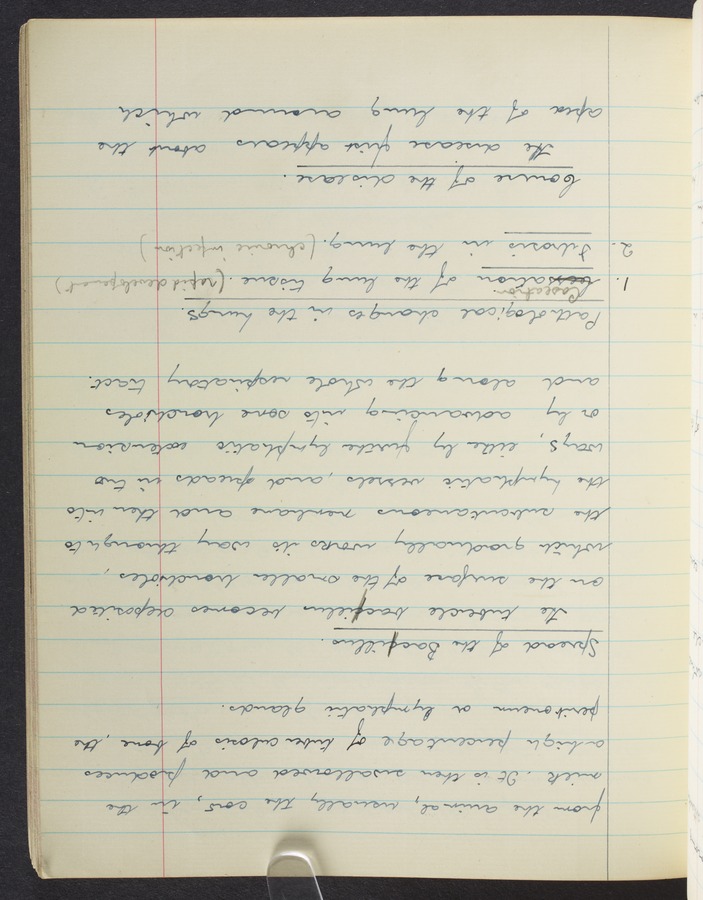 from the animal, usually the cow, in the
milk. It is then swallowed and produces
a high percentage of tuberculosis of bone, the
peritoneum or lymphatic glands.
Spread of the Bacillus.
The tubercle bacillus becomes deposited
on the surface of the smaller bronchioles,
which gradually works its way through to
the subcutaneous membrane and then into
the lymphatic vessels, and spreads in two
ways, either by further lymphatic extension
or by advancing into some bronchioles
and along the whole respiratory tract.
Pathological changes in the lungs.
Caseation
1. of the lung tissue. (rapid development)
2. Fibrosis in the lung. (chronic infection)
Course of the disease.
The disease first appears about the
apex of the lung around which